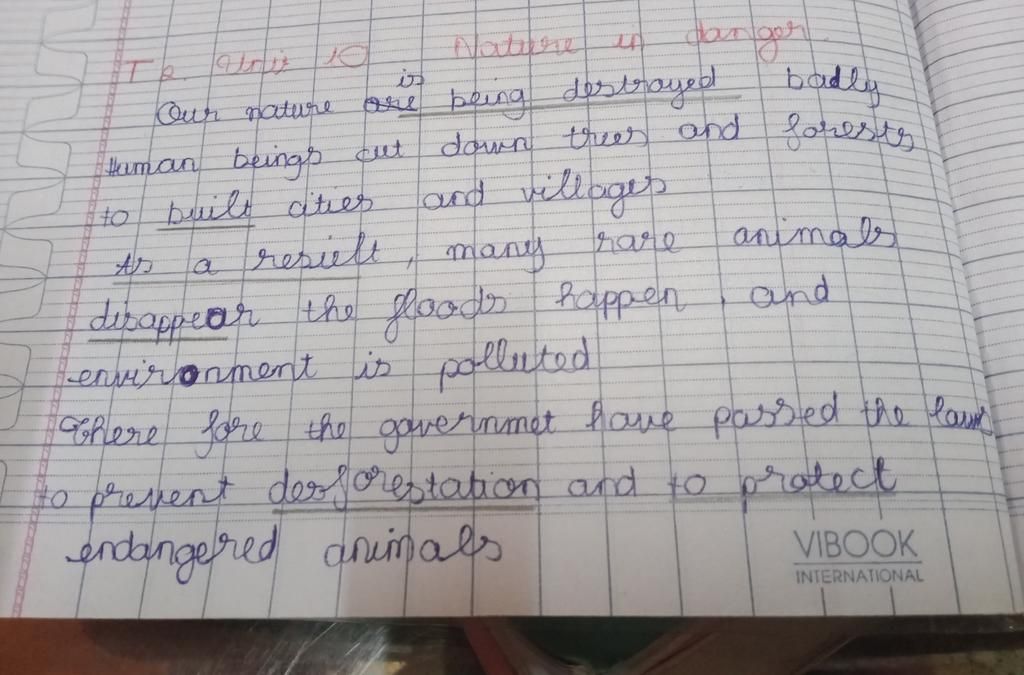 T2. Unit 10 Nature in danger
is
Our nature are being destrayed badly
Human beings cut down trees and forests
to built cities and villages
As a result, many rare animals
disappear the floods happen, and
environment is polluted
There fore the governmet have passed the laws
to prevent desforestation and to protect
endangered animals
VIBOOK
INTERNATIONAL